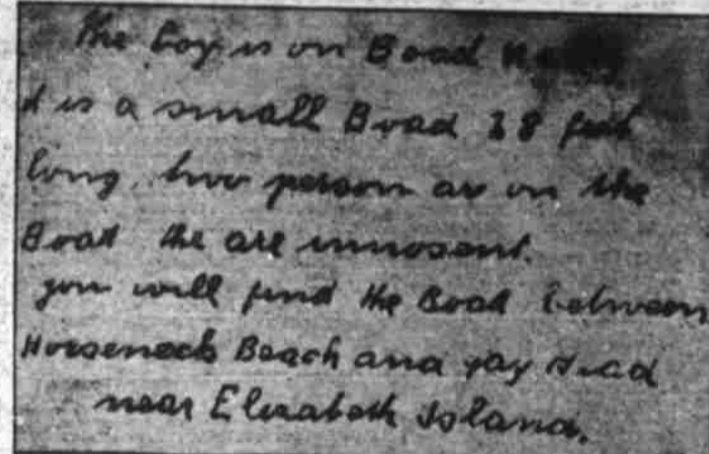 the boy is on Boad
it is a small Boad 28 feet
long, two person ar on the
Boad the are innosent.
you will find the Boad between
Horseneck Beach and gay Head
near Elizabeth Island.